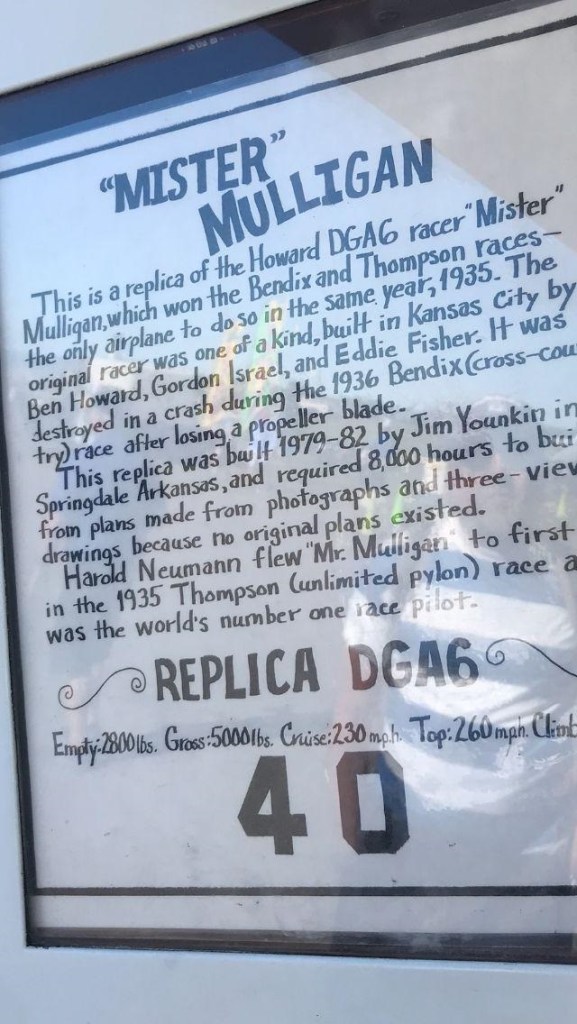 "MISTER"
MULLIGAN
This is a replica of the Howard DGA6 racer "Mister"
Mulligan, which won the Bendix and Thompson races-
the only airplane to do so in the same year, 1935. The
original racer was one of a kind, built in Kansas City by
Ben Howard, Gordon Israel, and Eddie Fisher. It was
destroyed in a crash during the 1936 Bendix (cross-cou
try) race after losing a propeller blade.
This replica was built 1979-82 by Jim Younkin in
Springdale Arkansas, and required 8,000 hours to bui
from plans made from photographs and three-view
drawings because no original plans existed.
Harold Neumann flew "Mr. Mulligan" to first
in the 1935 Thompson (unlimited pylon) race a
was the world's number one race pilot.
REPLICA DGA6
Empty:2800lbs. Gross:5000lbs. Cruise:230 mp.h. Top:260mph. Climb
40